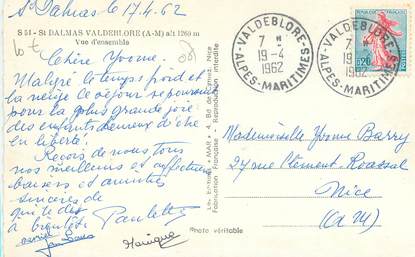 St Dalmas le 17.4.62
S 51 - St DALMAS VALDEBLORE (A-M) alt 1260 m
Vue d'ensemble
Chère Yvonne.
Malgré le temps froid et
la neige ce séjour se poursuit
pour la plus grande joie
des enfants heureux d'être
en liberté.
Reçois de nous tous
nos meilleurs et affectueux
baisers et amitiés
sincères de
Paulette
Monique
MAR - 4, Nice
Fabrication Française - Reproduction interdite
Photo véritable
VALDEBLORE
7 H
19-4
1962
ALPES-MARITIMES
VALDEBLORE
7
19-4
1962
ALPES-MARITIMES
0,20
Mademoiselle Yvonne Barry
27 rue Clément Roassal
Nice
(A M)